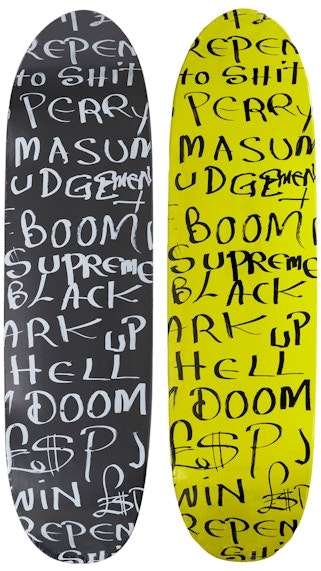 REPEN
to SHIT
PERRY
MASUM
UDGEMENT
BOOM
SUPREME
BLACK
ARK UP
HELL
DOOM
£$P J
WIN £$P
REPEN
SHIT
REPEN
to SHIT
PERRY
MASUM
UDGEMENT
BOOM
SUPREME
BLACK
ARK UP
HELL
DOOM
£$P J
WIN £$P
REPEN
SHIT